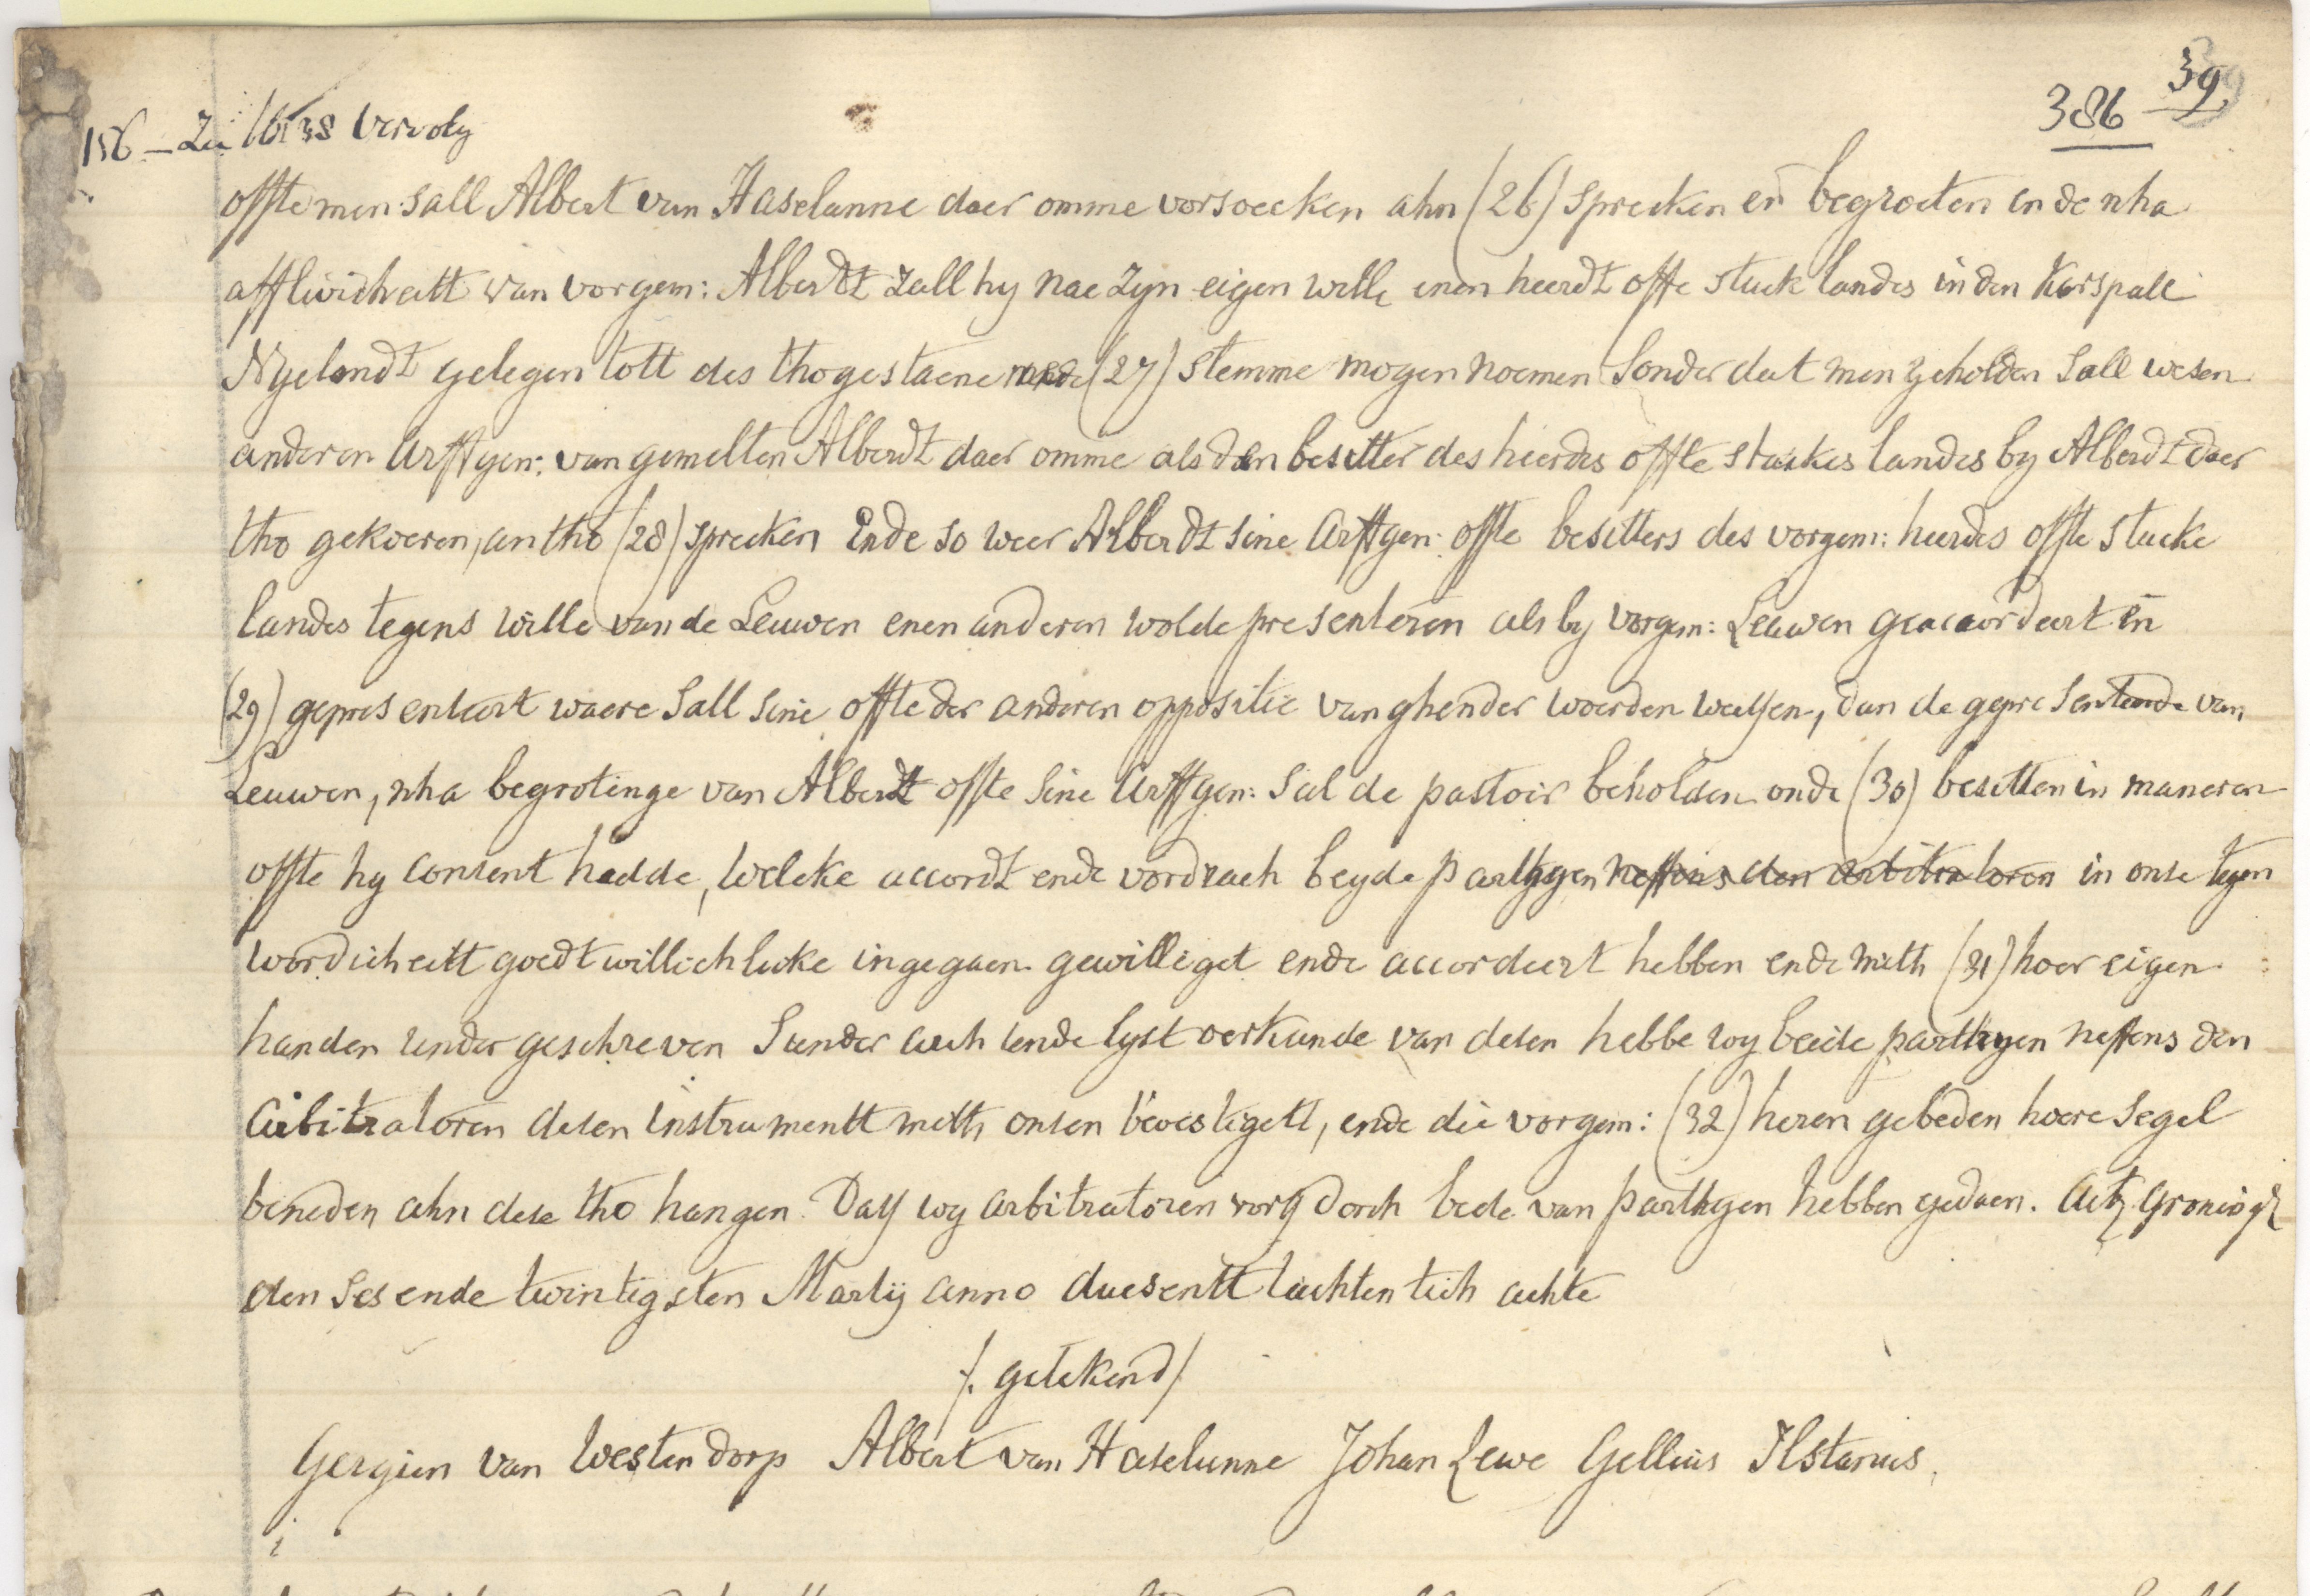 386 39
156 – Zie 16 38 vervolg
offte men sall Albert van Haselunne daer omme vorsoecken ahn (26) sprecken eñ begroeten ende nha
afflivicheitt van vorgem: Alberdt zall hy nae zyn eigen wille enen heerdt offe stuck landes in den Karspall
Nyelandt gelegen tott des thogestaene (27) stemme mogen noemen sonder dat men geholden sall wesen
anderen Arffgen: van gemelten Alberdt daer omme als den besitter des heerdes offte stuckes landes by Alberdt daer
tho gekoeren, an tho (28) sprecken Ende so weer Alberdt sine Arffgen: offte besitters des vorgem: heerdes offte stucke
landes tegens wille van de Leuwen enen anderen wolde presenteren als by vorgem: Leuwen geaccordeert eñ
(29) gepresenteert waere sall sine offte der anderen oppositie van ghender woerden wesen, dan de gepresenteerde van
Leuwen, nha begrotinge van Alberdt offte sine Arffgen: sal de pastoir beholden onde (30) besitten in maneren
offte hy consent hadde, welcke accordt ende vordrach beyde parthyen neffens den arbitratoren in onse tegen
wordicheitt goedtwillichlicke ingegaen gewilliget ende accordeert hebben ende mith (31) hoer eigen
handen undergeschreven Sunder arch ende lyst oerkunde van desen hebbe wy beide parthyen neffens den
Arbitratoren desen instrumentt mith onsen bevestigett, ende die vorgem: (32) heren gebeden hoere segel
beneden ahn dese tho hangen. Daty wy arbitratoren vorg doch bede van parthyen hebben gedaen. Act Groning
den ses ende twintigsten Martij anno duesentt tachtentich achte
/. getekend/
Gergien van Westendorp Albert van Haselunne Johan Lewe Gellius Ilstanus.